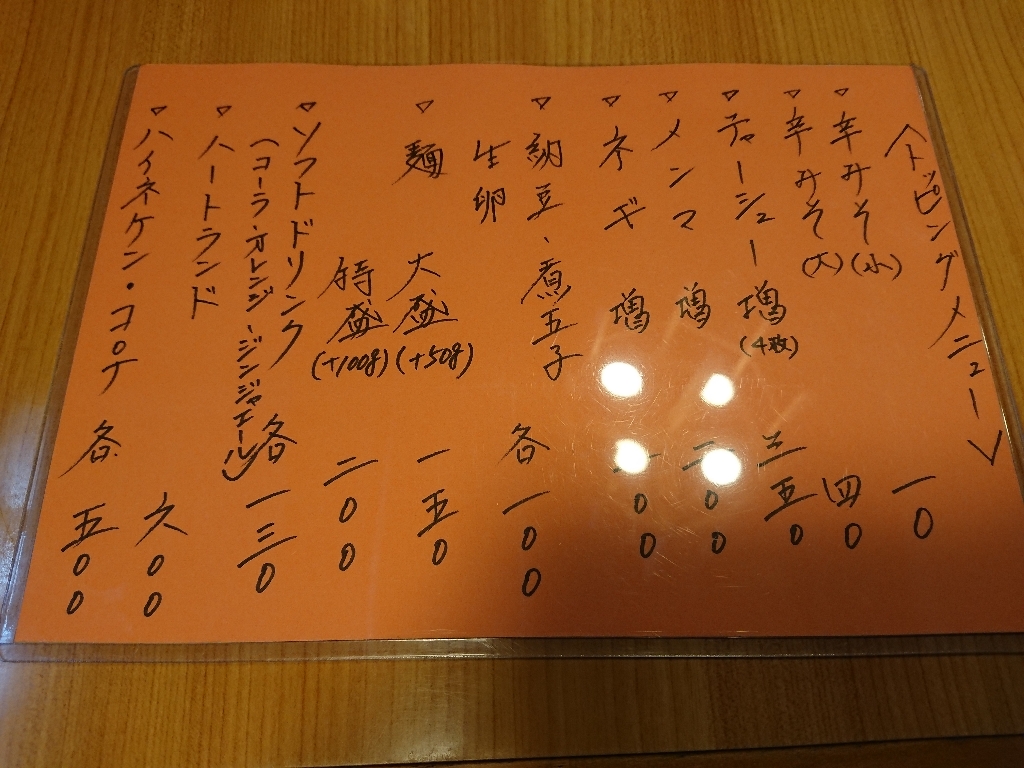 〈トッピングメニュー〉
▽辛みそ(小) 一0
▽辛みそ(大) 四0
▽チャーシュー増(4枚) 三五0
▽メンマ増 二00
▽ネギ増
▽納豆、煮玉子
生卵 各一00
▽麺 大盛(+50g) 一五0
特盛(+100g) 二00
▽ソフトドリンク
(コーラ、オレンジ、ジンジャエール) 各一三0
▽ハートランド 六00
▽ハイネケン・コロナ 各五00